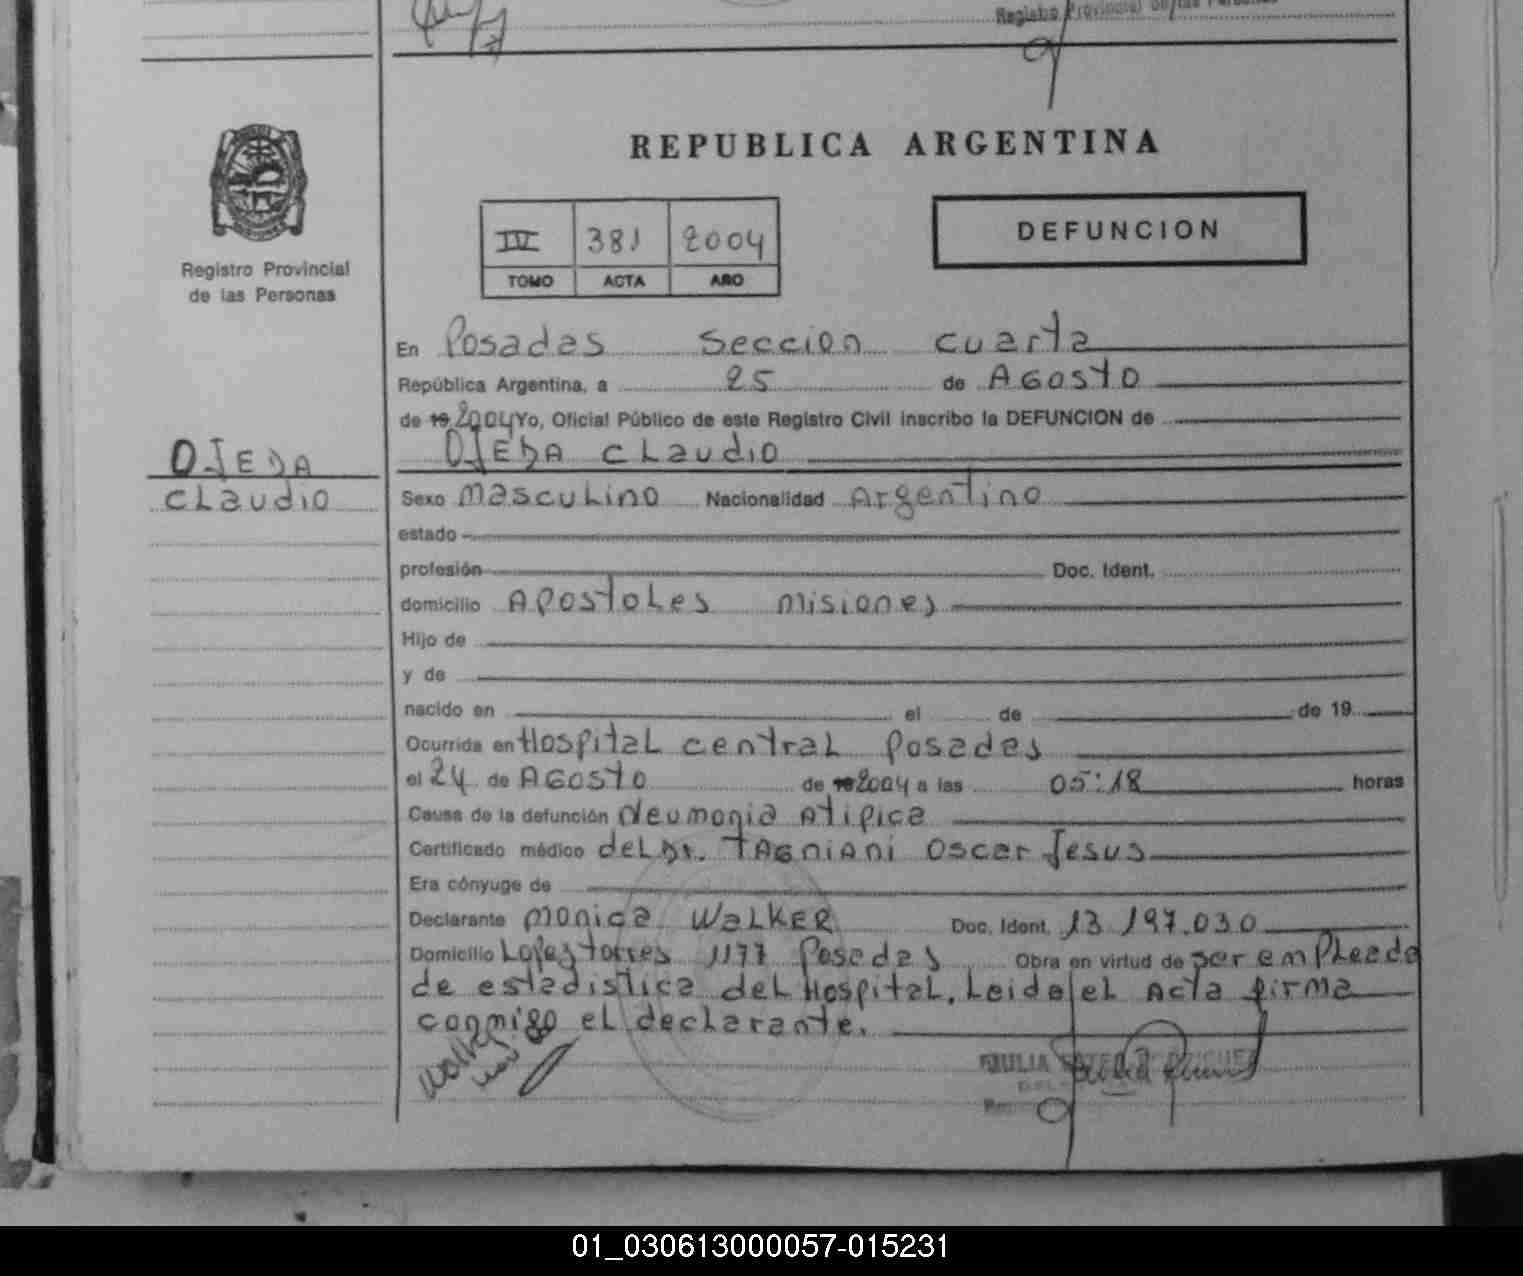 Registro Provincial de las Personas
REPUBLICA ARGENTINA
IV 381 2004
TOMO ACTA AÑO
DEFUNCION
Registro Provincial
de las Personas
OJEDA
CLaudio
En Posadas seccion cuarta
República Argentina, a 25 de AGosto
de 19 2004 Yo, Oficial Público de este Registro Civil inscribo la DEFUNCION de
OJEDA CLaudio
Sexo mascuLino Nacionalidad Argentino
estado
profesión Doc. Ident.
domicilio APostoLes misiones
Hijo de
y de
nacido en el de de 19
Ocurrida en HospitaL centraL Posadas
el 24 de AGosto de 19 2004 a las 05:18 horas
Causa de la defunción Neumonia Atipica
Certificado médico deL Dr. TAGniAni Oscar Jesus
Era cónyuge de
Declarante monica WaLKER Doc. Ident. 13.197.030
Domicilio Lopez torres 1177 Posadas Obra en virtud de ser empLeada
de estadistica deL HospitaL. Leida eL Acta firma
conmigo eL decLarante.
JULIA
01_030613000057-015231